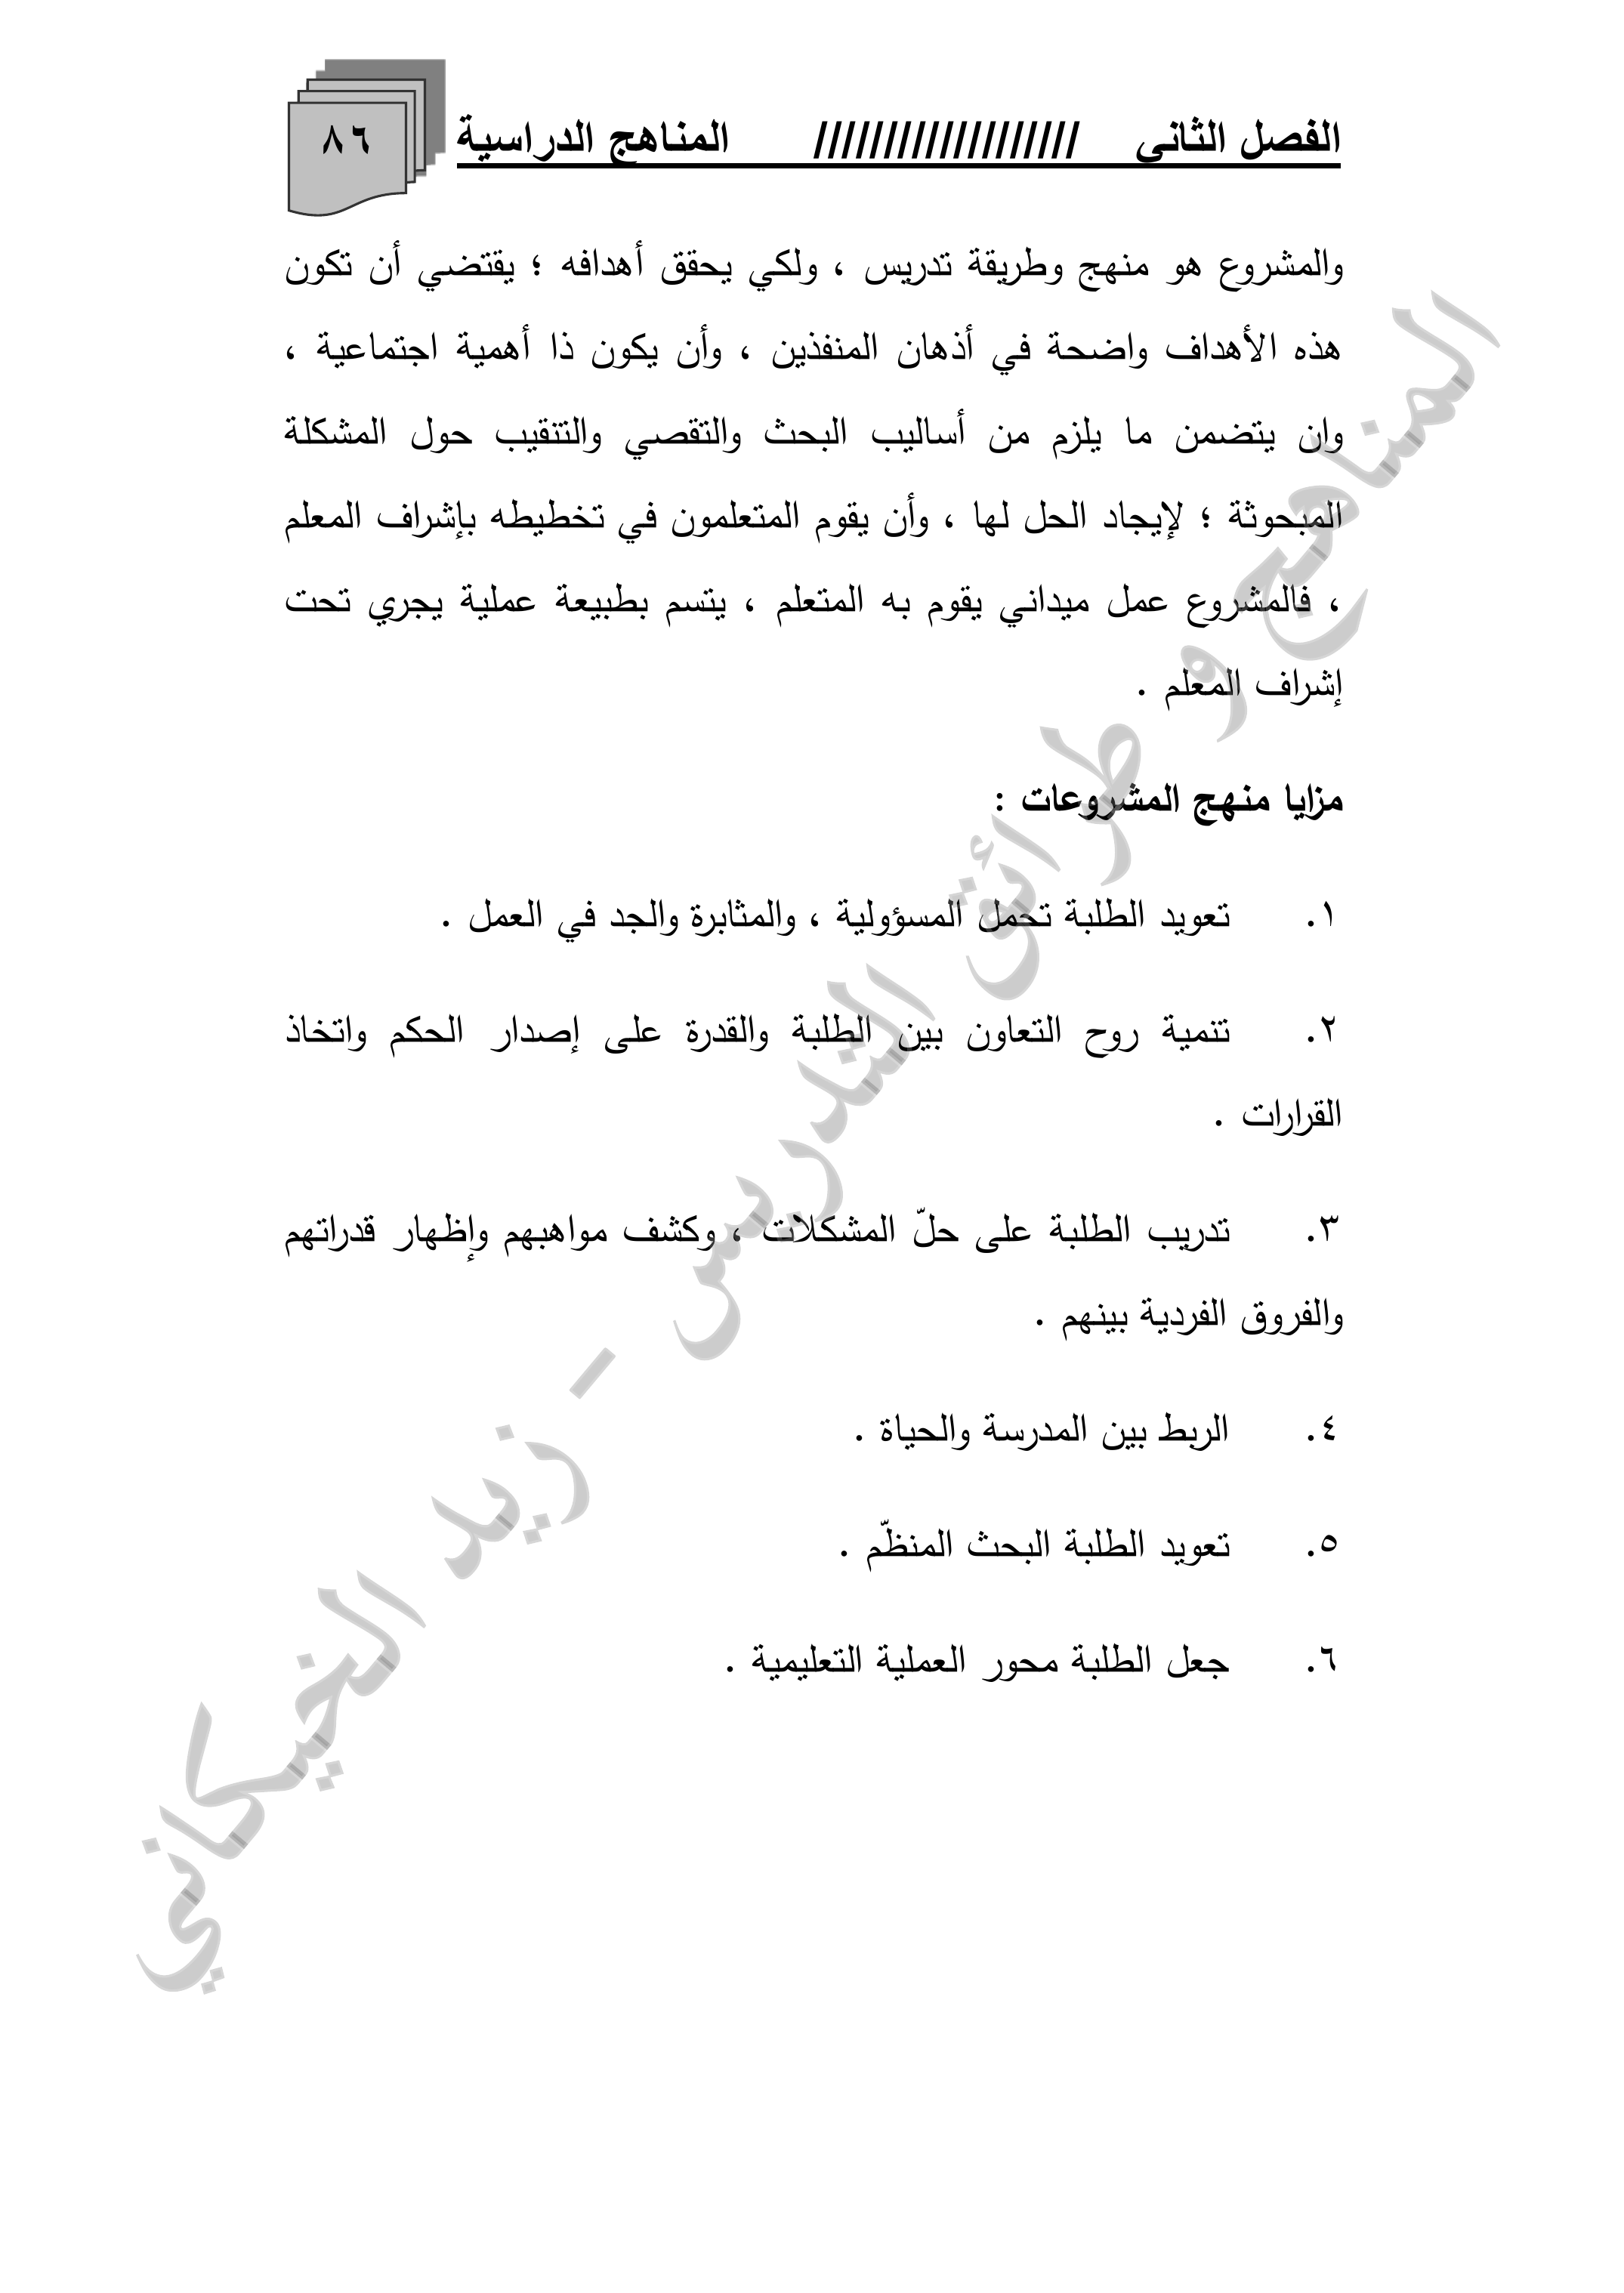 الفصل الثاني /////////////////// المناهج الدراسية ٨٦
والمشروع هو منهج وطريقة تدريس ، ولكي يحقق أهدافه ؛ يقتضي أن تكون
هذه الأهداف واضحة في أذهان المنفذين ، وأن يكون ذا أهمية اجتماعية ،
وان يتضمن ما يلزم من أساليب البحث والتقصي والتنقيب حول المشكلة
المبحوثة ؛ لإيجاد الحل لها ، وأن يقوم المتعلمون في تخطيطه بإشراف المعلم
، فالمشروع عمل ميداني يقوم به المتعلم ، يتسم بطبيعة عملية يجري تحت
إشراف المعلم .
مزايا منهج المشروعات :
١. تعويد الطلبة تحمل المسؤولية ، والمثابرة والجد في العمل .
٢. تنمية روح التعاون بين الطلبة والقدرة على إصدار الحكم واتخاذ
القرارات .
٣. تدريب الطلبة على حلّ المشكلات ، وكشف مواهبهم وإظهار قدراتهم
والفروق الفردية بينهم .
٤. الربط بين المدرسة والحياة .
٥. تعويد الطلبة البحث المنظّم .
٦. جعل الطلبة محور العملية التعليمية .
المناهج و طرائق التدريس - زيد الخيكاني